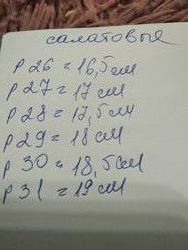 салатовые
р 26 = 16,5 см
р 27 = 17 см
р 28 = 17,5 см
р 29 = 18 см
р 30 = 18,5 см
р 31 = 19 см